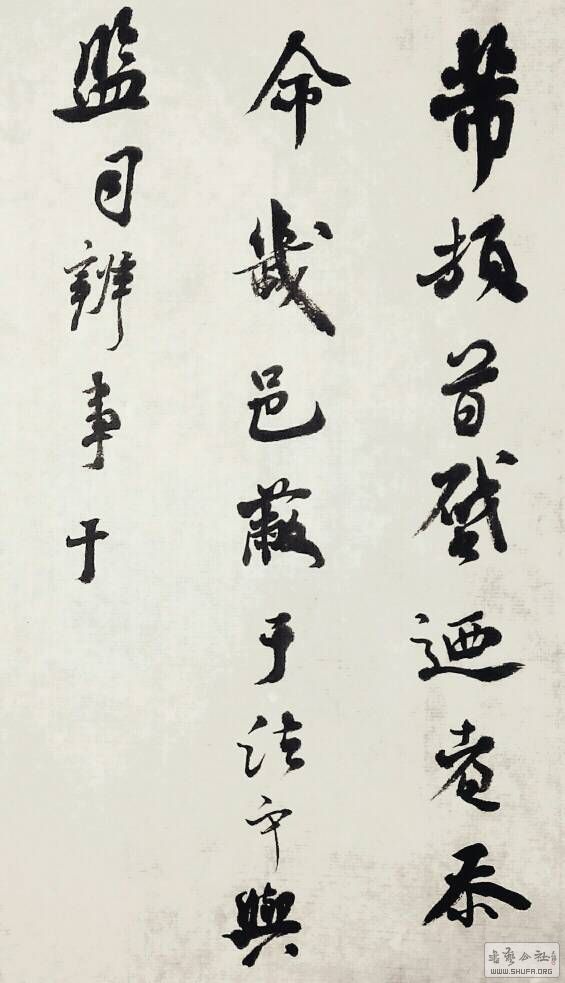 芾頓首啓迺者忝
命畿邑蔽于法守與
監司辨事干
書藝公社
WWW.SHUFA.ORG